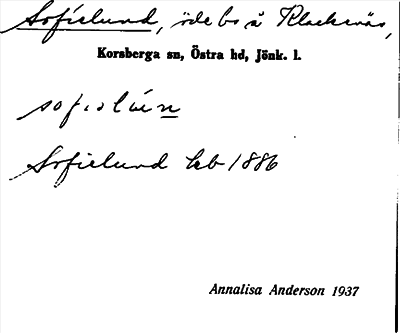 Sofielund, öde bs å Klackenäs,
Korsberga sn, Östra hd, Jönk. l.
sofislún
Sofielund hb 1886
Annalisa Anderson 1937